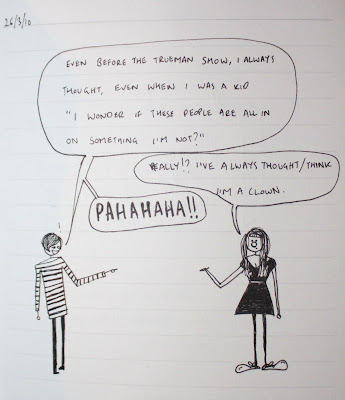 26/3/10
EVEN BEFORE THE TRUEMAN SHOW, I ALWAYS
THOUGHT, EVEN WHEN I WAS A KID
"I WONDER IF THESE PEOPLE ARE ALL IN
ON SOMETHING I'M NOT?"
REALLY!? I'VE ALWAYS THOUGHT/THINK
I'M A CLOWN.
PAHAHAHA!!